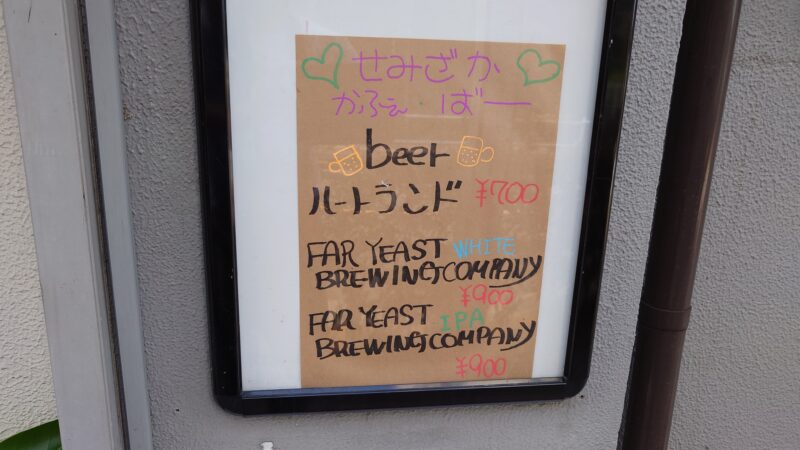 せみざか
かふぇ・ばー
beer
ハートランド ¥700
FAR YEAST WHITE
BREWING COMPANY
¥900
FAR YEAST IPA
BREWING COMPANY
¥900